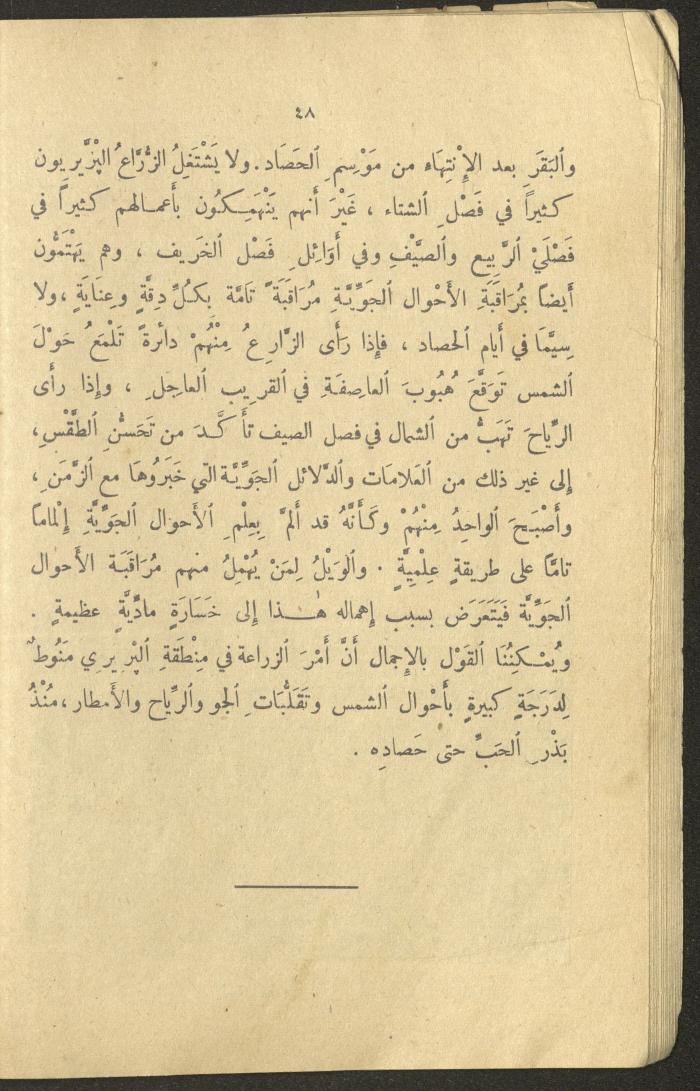 ٤٨
وٱلبَقَرِ بعد الإِنْتِهَاء من مَوْسِمِ ٱلحَصَاد. ولا يَشْتَغِلُ الزُّرَّاعُ البْرْيريون
كثيراً في فَصْلِ ٱلشتاء ، غَيْرَ أَنهم يَنْهَمِكُون بأَعمالهم كثيراً في
فَصْلَيْ ٱلرَّبيع وٱلصَّيْفِ وفي أَوَائِلِ فَصْل ٱلخَريف ، وهم يَهْتَمُّون
أَيضاً بمُرَاقَبَةِ الأَحْوال ٱلجَوِّيَّةِ مُرَاقَبَةً تَامَّة بكُلِّ دِقَّةٍ وعِنَايَةٍ ،ولا
سِيَّمَا في أَيام ٱلحصاد ، فإذا رَأَى الزَّارِعُ مِنْهُمْ دائرةً تَلْمَعُ حَوْلَ
ٱلشمس تَوَقَّعَ هُبُوبَ ٱلعاصِفَةِ في ٱلقريب ٱلعاجِلِ ، وإذا رأَى
الرِّياحَ تَهَبُّ من ٱلشمال في فصل الصيف تأَكَّدَ من تَحَسُّنِ ٱلطَّقْسِ،
إلى غير ذلك من ٱلعَلامَات وٱلدَّلائل ٱلجَوِّيَّة التي خَبَرُوهَا مع ٱلزَّمَنِ ،
وأَصْبَحَ ٱلواحِدُ مِنْهُمْ وكَأَنَّهُ قد أَلمَّ بِعِلْمِ ٱلأَحوال ٱلجَوِّيَّةِ إِلْماماً
تامًّا على طريقةٍ عِلْمِيَّةٍ . وٱلوَيْلُ لِمَنْ يُهْمِلُ منهم مُرَاقَبَة الأَحوال
ٱلجَوِّيَّة فَيَتَعَرَض بسبب إِهماله هٰذا إلى خَسَارَةٍ مادِّيَّةٍ عظيمةٍ .
ويُمْكِنُنَا ٱلقَوْل بالإِجمال أَنَّ أَمْرَ ٱلزراعة في مِنْطَقَةِ ٱلبْرْيرِي مَنُوطٌ
لِدَرَجَةٍ كبيرةٍ بأَحْوال ٱلشمس وتَقَلُّبَاتِ ٱلجو وٱلرِّياح والأَمطار ،مُنْذُ
بَذْرِ ٱلحَبِّ حتى حَصادِه .